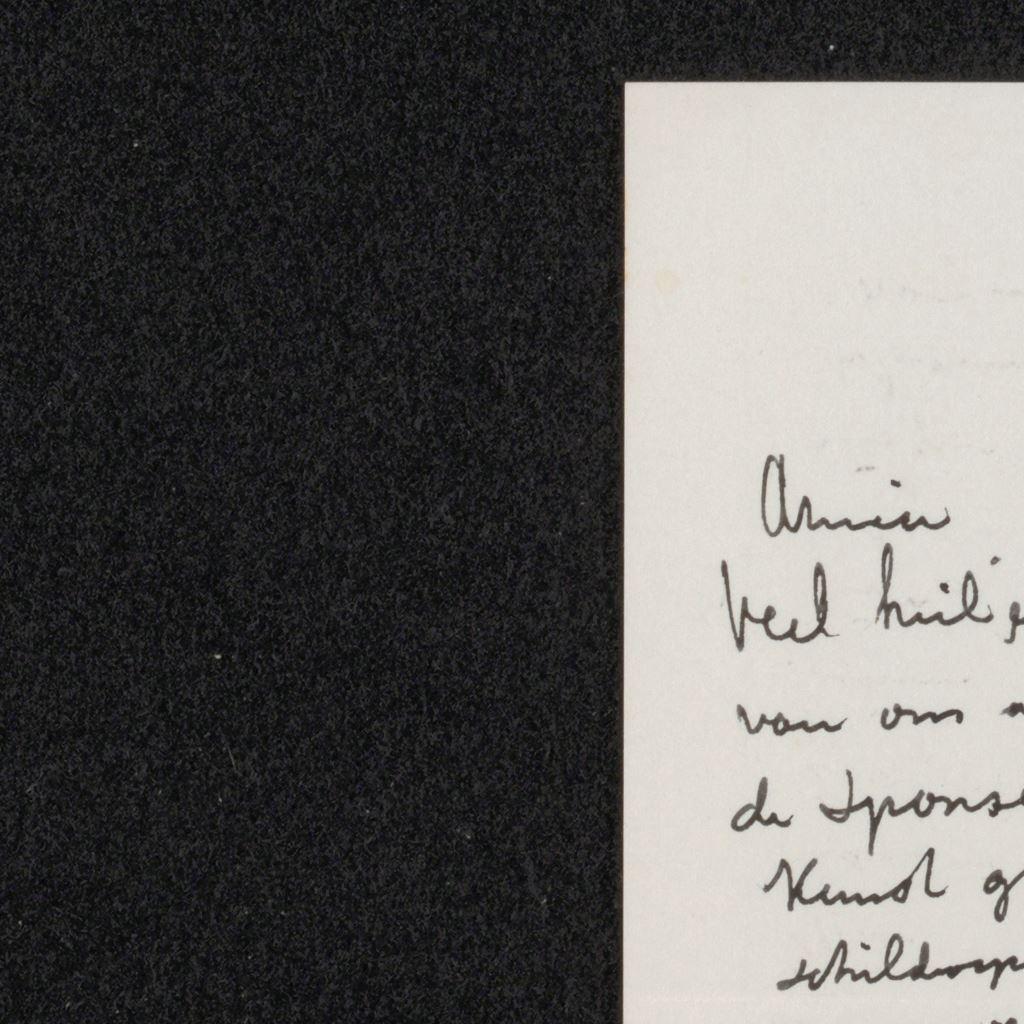 Armin
Veel heil
van ons
de Spons
Kunst g
schilder